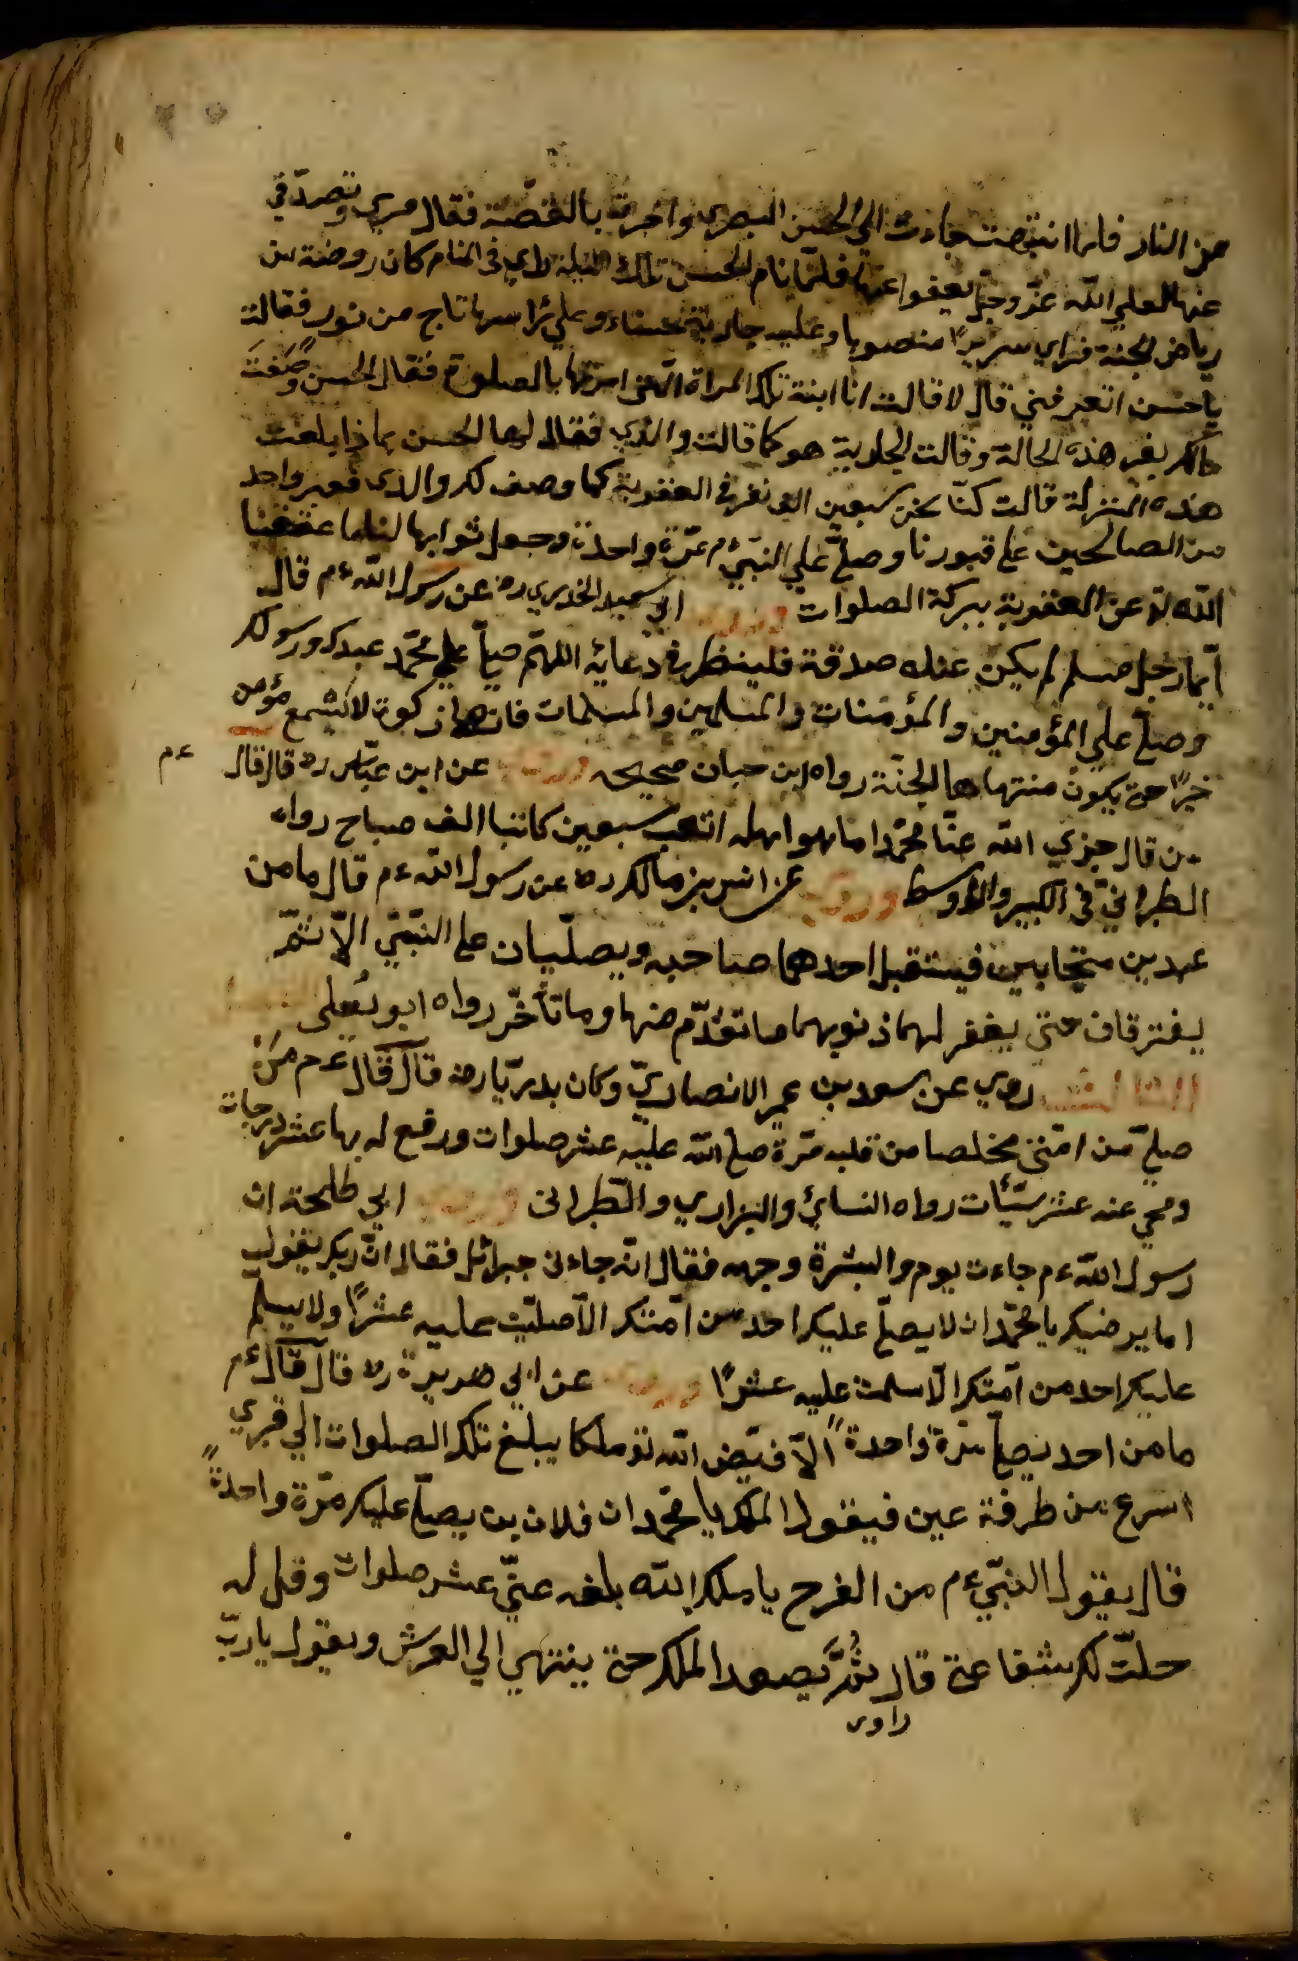 من النار فلما انتبهت جاءت الى الحسن البصرى واخبرت بالقصة فقال مرى وتصدّقى
عنها لعلى الله عزّ وجلّ يعفوا عنها فلمّا نام الحسن تلك الليلة راى فى المنام كان روضة من
رياض الجنة فراى سريرًا منصوبا وعليه جارية حسناء وعلى راسها تاج من نور فقالت
يا حسن اتعرفنى قال لا قالت انا ابنة تلك المراة التى امرتها بالصلوة فقال الحسن وصفت
بغير هذه الحالة وقالت الجارية هو كما قالت والدى فقال لها الحسن بماذا بلغت
هذه المنزلة قالت كنّا نحن سبعين الف نفر فى العقوبة كما وصف لك والدى فعبر واحد
من الصالحين على قبورنا وصلّى على النبىّ ءم مرّة واحدة وجعل ثوابها لنا
الله تع عن العقوبة ببركة الصلوات ابى سعيد الخدرى رض عن رسول الله ءم قال
ايّما رجل مسلم لم يكن عنده صدقة فى دعائه اللهمّ صلّ على محمّد عبدك ورسولك
وصلّ على المؤمنين والمؤمنات والمسلمين والمسلمات فانها زكوة لا يشبع مؤمن
خيرًا حتى يكون منتهاها الجنّة رواه ابن حبان صحيحه وروى عن ابن عبّاس رض قال قال ءم
من قال جزى الله عنّا محمّدا ما هو اهله اتعب سبعين كاتبا الف صباح رواه
الطبرانىّ فى الكبير والاوسط وروى عن انس بن مالك رض عن رسول الله ءم قال ما من
عبدين متحابين فيستقبل احدهما صاحبه ويصلّيان على النبىّ الاّ لم
يفترقان حتى يغفر لهما ذنوبهما ما تقدّم منها وما تأخّر رواه ابو يعلى
الثالث روى عن سعد بن عمير الانصارىّ وكان بدريّا رض قال قال ءم من
صلّى من امّتى مخلصا من قلبه مرّة صلى الله عليه عشر صلوات ورفع له بها عشر درجات
ومحى عنه عشر سيّئات رواه النسائى والبزارى والطبرانى وروى ابى طلحة ان
رسول الله ءم جاءت يوم والبشرة وجهه فقال انّه جاءنى جبرائل فقال انّ ربك يقول
اما يرضيك يا محمّد ان لا يصلّى عليك احد من امّتك الاّ صلّيت عليه عشرًا ولا يسلّم
عليك احد من امّتك الاّ سلمت عليه عشرًا وروى عن ابى هريرة رض قال قال ءم
ما من احد يصلّى مرّة واحدة الاّ فيّض الله تع ملكا يبلغ تلك الصلوات الى قبرى
اسرع من طرفة عين فيقول الملك يا محمّد ان فلان بن يصلّى عليك مرّة واحدة
قال يقول النبىّ ءم من الفرح يا ملك الله بلغه عنّى عشر صلوات وقل له
حلّت لك شفاعتى قال ثُمَّ يصعد الملك حتى ينتهى الى العرش ويقول يا ربّ
راوى